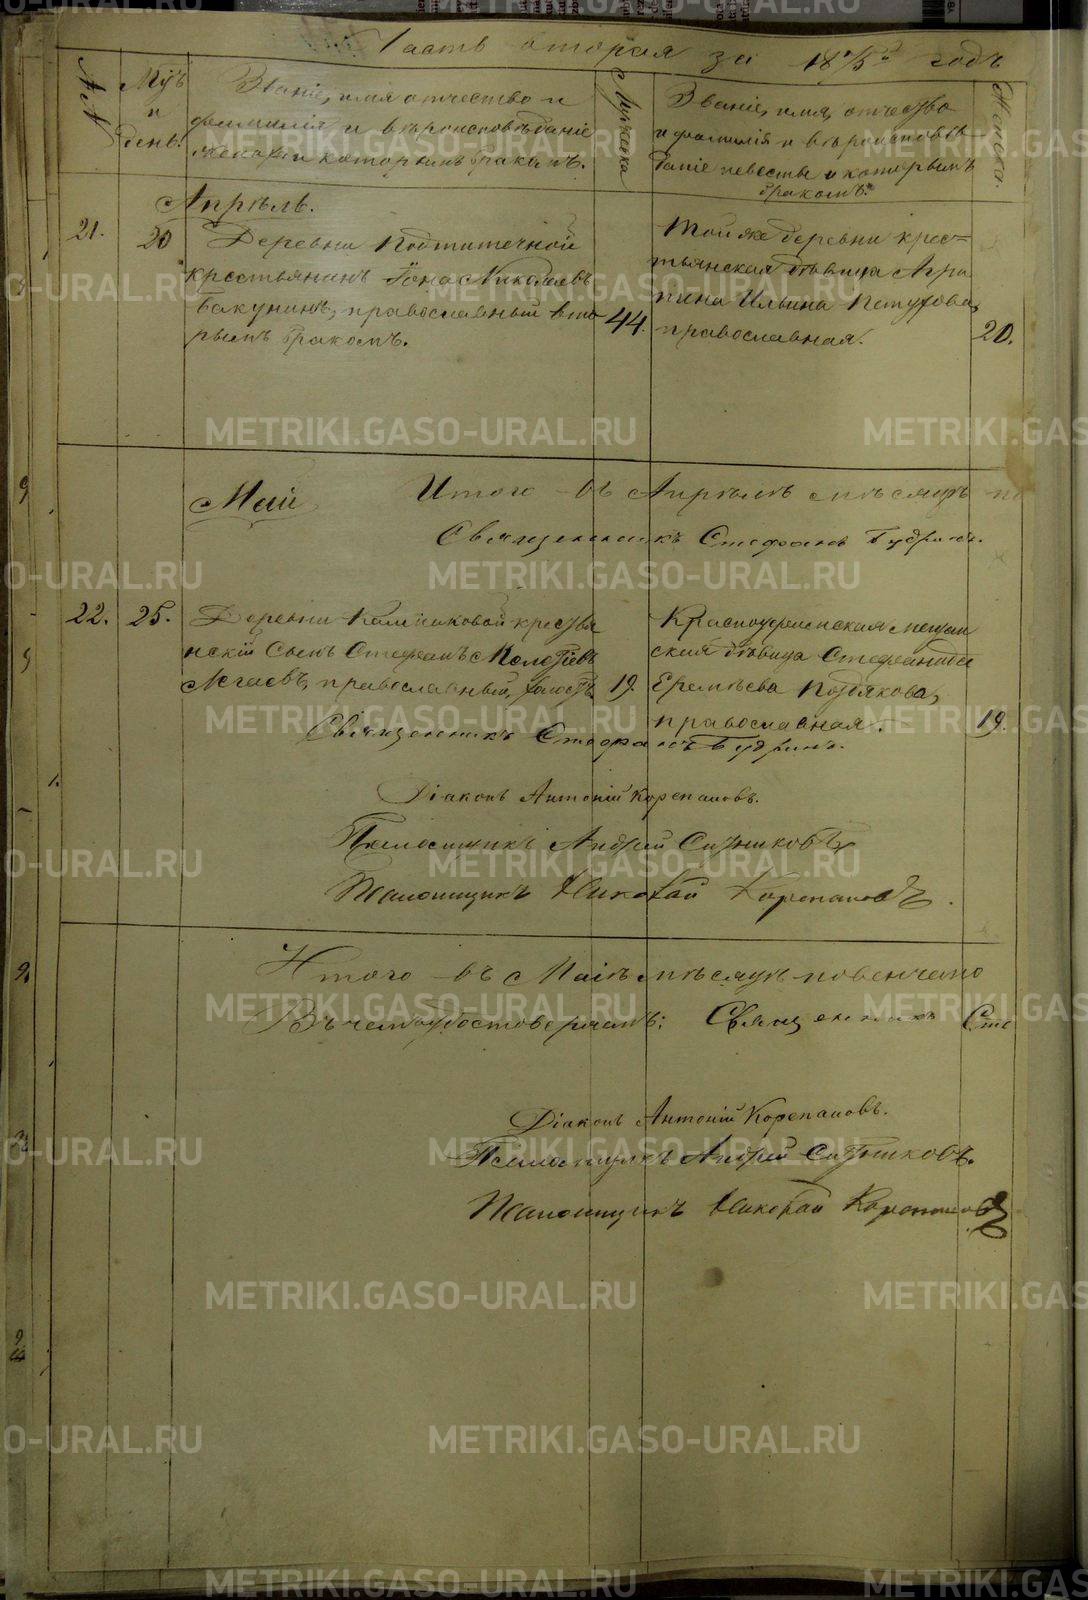 Часть вторая за 18 75й годъ
№№
Мцъ
и
день.
Званіе, имя отчество и
фамилія и вѣроисповѣданіе
жениха и которымъ бракомъ.
Мужика
Званіе, имя, отчество
и фамилія и вѣроисповѣ
даніе невесты и которымъ
бракомъ.
Женска.
Апрѣль.
21.
20
Деревни
крестьянинъ Іона Николаевъ
Бакунинъ, православный вто
рымъ бракомъ.
44.
Той же деревни крес=
тьянская дѣвица Агра
пина Ильина Петухова,
православная.
20.
Май
Итого въ Апрѣлѣ мѣсяцѣ по
Священникъ Стефанъ Будринъ.
22.
25.
Деревни крестья
нскій сынъ Стефанъ
православный,
19.
Красноуфимская мещан
ская дѣвица Стефанида
Еремѣева
православная.
19.
Священникъ Стефанъ Будринъ.
Діаконъ Антоній Корепановъ.
Псаломщикъ Андрей Ситниковъ
Псаломщикъ Николай Корепановъ.
Итого въ Маіѣ мѣсяцѣ повенчано
Въ чемъ удостоверяемъ: Священникъ Сте
Діаконъ Антоній Корепановъ.
Псаломщикъ Андрей Ситниковъ.
Псаломщикъ Николай Корепановъ
METRIKI.GASO-URAL.RU